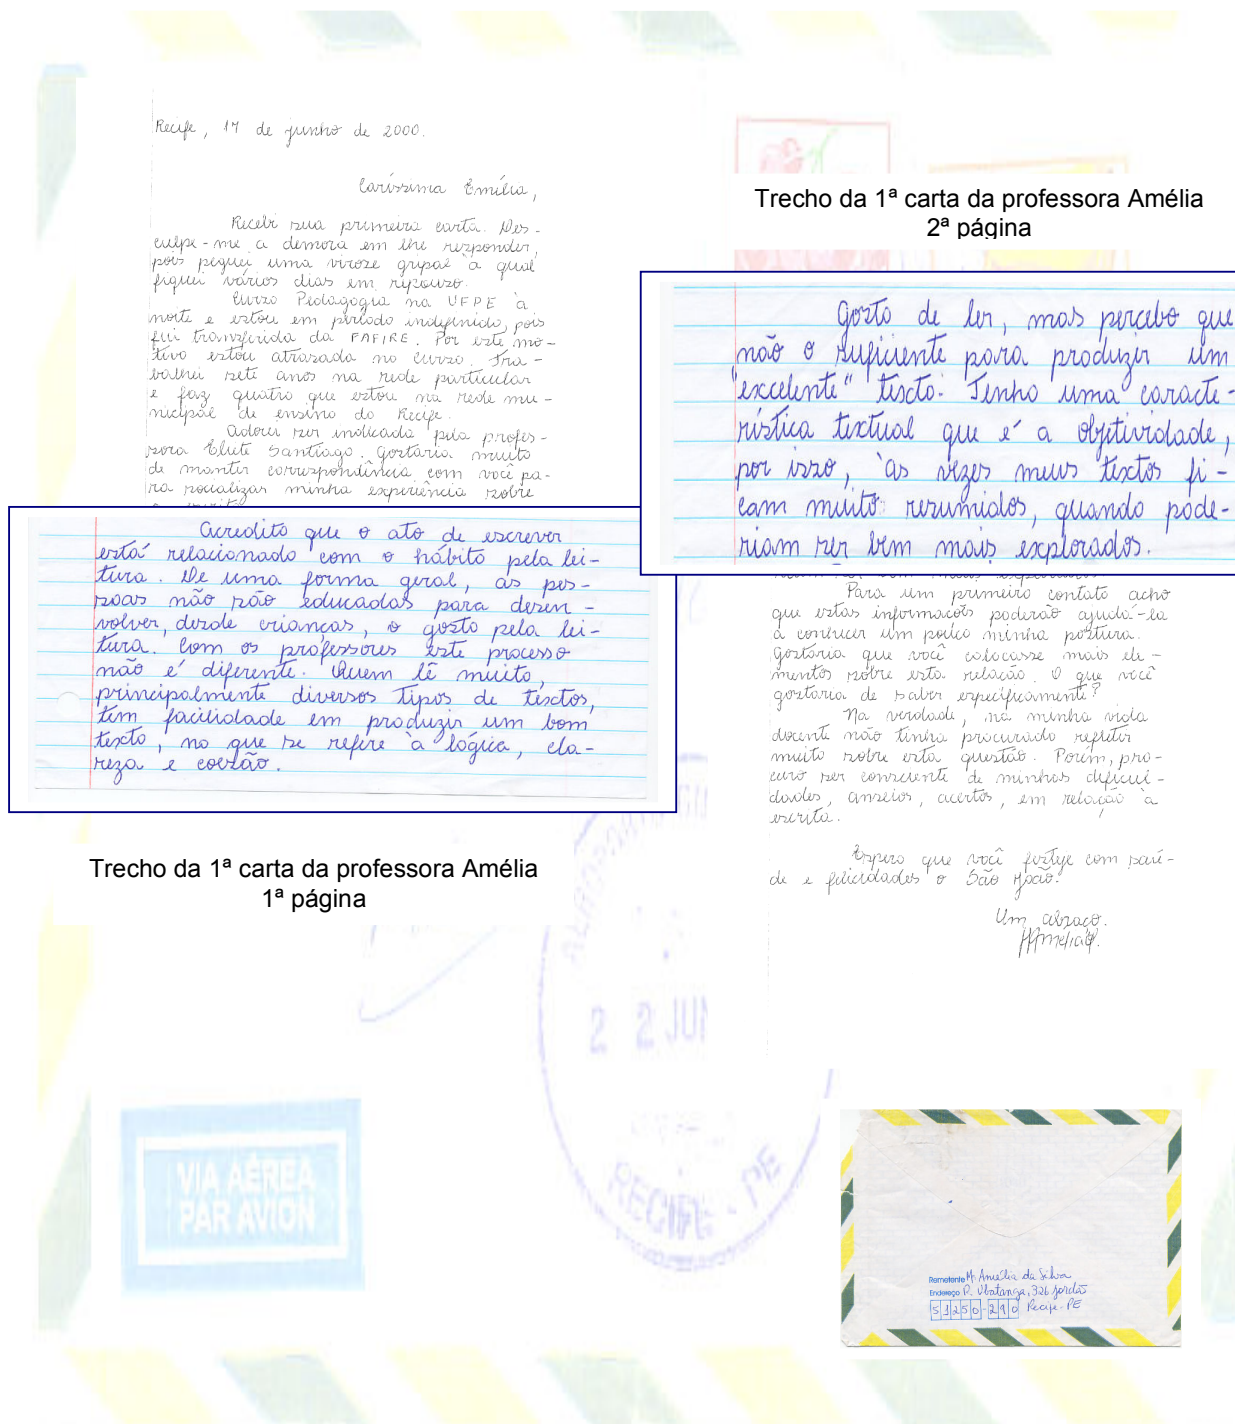 Recife, 17 de junho de 2000.
Caríssima Emília,
Recebi sua primeira carta. Des-
culpe-me a demora em lhe responder,
pois peguei uma viroze gripal à qual
fiquei vários dias em repouzo.
Curso Pedagogia na UFPE à
noite e estou em período indefinido, pois
fui transferida da FAFIRE. Por este mo-
tivo estou atrasada no curso. Tra-
balhei sete anos na rede particular
e faz quatro que estou na rede mu-
nicipal de ensino do Recife.
Adorei ser indicada pela profes-
sora Eliete Santiago. Gostaria muito
de manter correspondência com você pa-
ra socializar minha experiência sobre
Acredito que o ato de escrever
está relacionado com o hábito pela lei-
tura. De uma forma geral, as pes-
soas não são educadas para desen-
volver, desde crianças, o gosto pela lei-
tura. Com os professores este processo
não é diferente. Quem lê muito,
principalmente diversos tipos de textos,
tem facilidade em produzir um bom
texto, no que se refere à lógica, cla-
reza e coesão.
Trecho da 1ª carta da professora Amélia
1ª página
Trecho da 1ª carta da professora Amélia
2ª página
Gosto de ler, mas percebo que
não o suficiente para produzir um
"excelente" texto. Tenho uma caracte-
rística textual que é a objetividade,
por isso, às vezes meus textos fi-
cam muito resumidos, quando pode-
riam ser bem mais explorados.
Para um primeiro contato acho
que estas informações poderão ajudá-la
a conhecer um pouco minha postura.
Gostaria que você colocasse mais ele-
mentos sobre esta relação. O que você
gostaria de saber especificamente?
Na verdade, na minha vida
docente não tinha procurado refletir
muito sobre esta questão. Porém, pro-
curo ser consciente de minhas dificul-
dades, anseios, acertos, em relação à
escrita.
Espero que você festeje com saú-
de e felicidades o São João.
Um abraço.
2 2 JUN
RECIFE - PE
VIA AÉREA
PAR AVION
Remetente Mª Amélia da Silva
Endereço R. Ubatanga, 326 Jordão
51250-290 Recife-PE